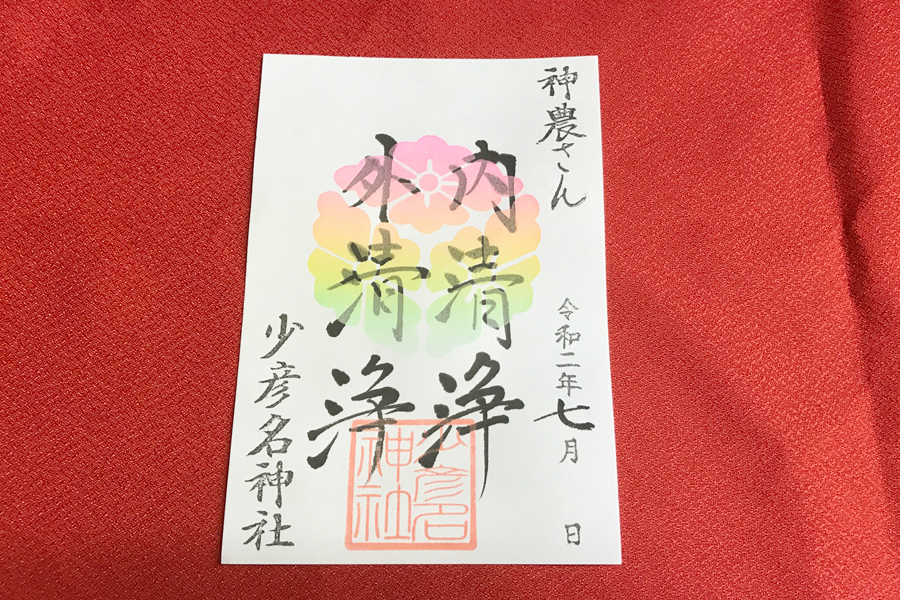 神農さん
令和二年七月 日
内清浄
外清浄
少彦名神社
少彦名
神社